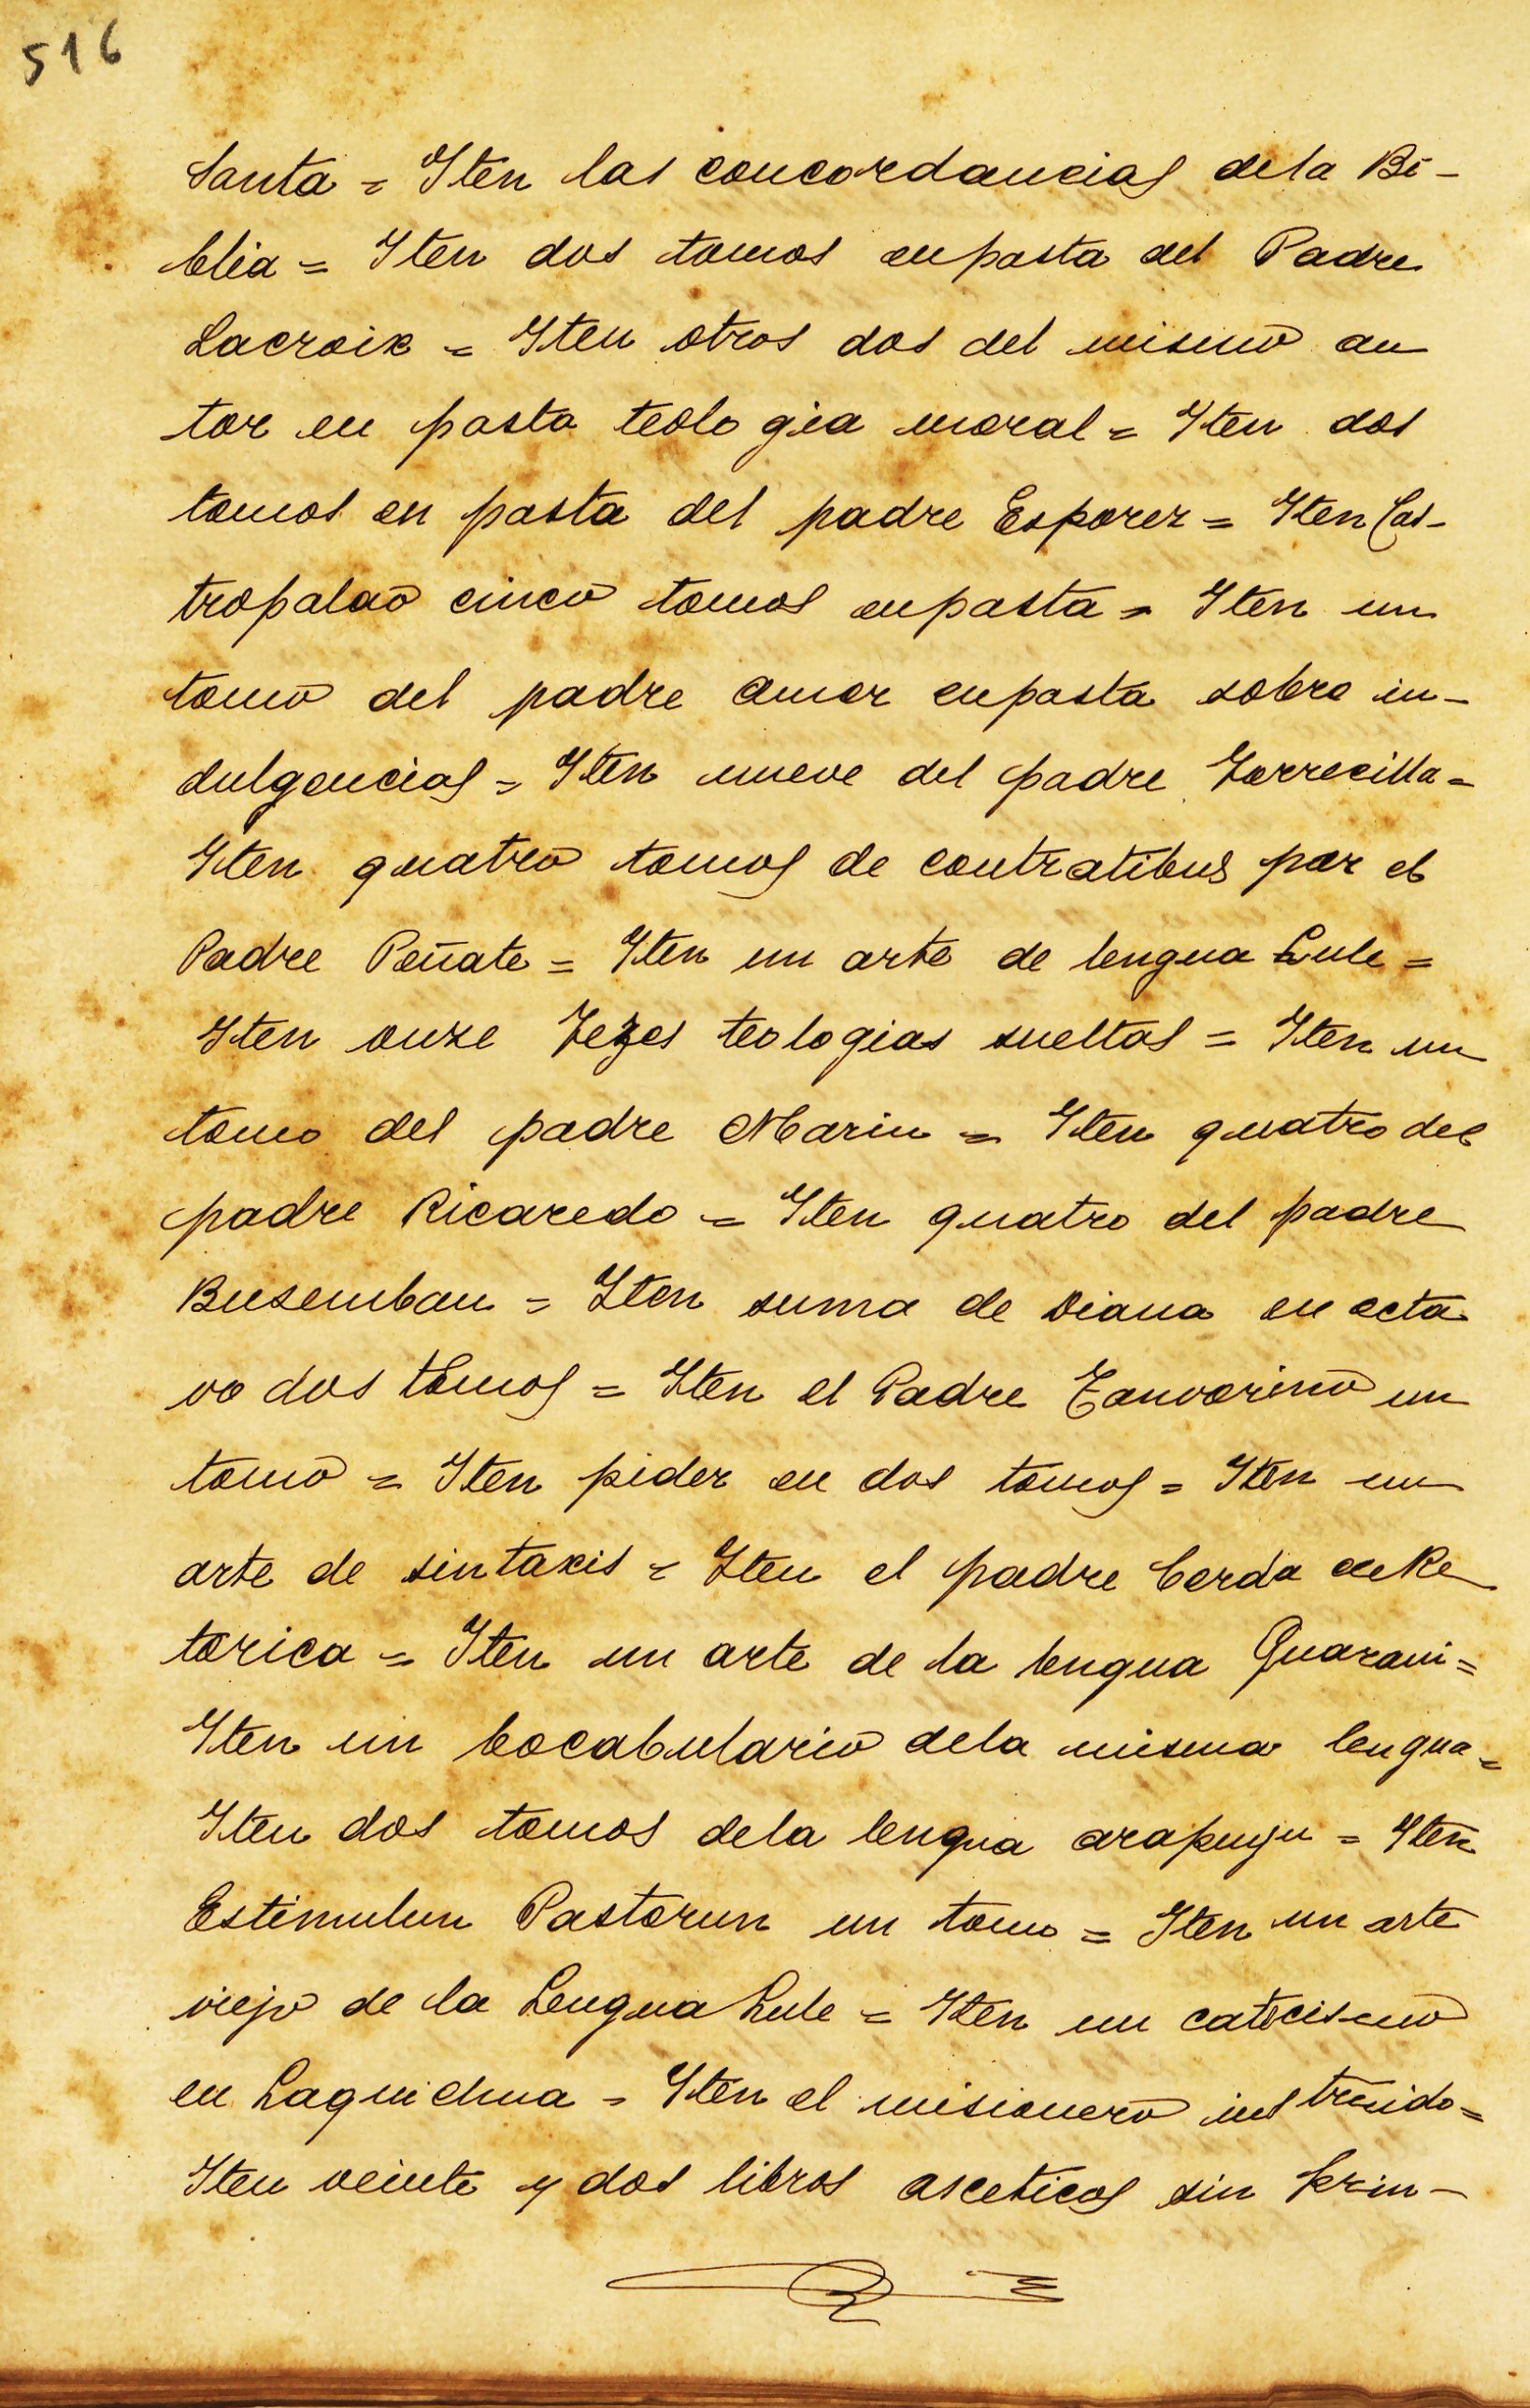 516
Santa = Iten las concordancias dela Bi-
blia = Iten dos tomos enpasta del Padre
Lacroix = Iten otros dos del mismo au
tor en pasta teologia moral = Iten dos
tomos en pasta del padre Esparez = Iten Cas-
tropalao cinco tomos enpasta = Iten un
tomo del padre Amor enpasta sobre in-
dulgencias = Iten nueve del padre Torrecilla =
Iten quatro tomos de contratibus por el
Padre Peñate = Iten un arte de lengua Lule =
Iten onze Tezes teologias sueltas = Iten un
tomo del padre Marin = Iten quatro del
padre Ricaredo = Iten quatro del padre
Busembau = Iten suma de Diana en octa
vo dos tomos = Iten el Padre un
tomo = Iten pider en dos tomos = Iten un
arte de sintaxis = Iten el padre Cerda en Re
torica = Iten un arte de la lengua Guarani =
Iten un bocabulario dela misma lengua =
Iten dos tomos dela lengua = Iten
Estimulun Pastorun un tomo = Iten un arte
viejo de la Lengua Lule = Iten un catecismo
en Laquichua = Iten el misionero instruido =
Iten veinte y dos libros asceticos sin prin-